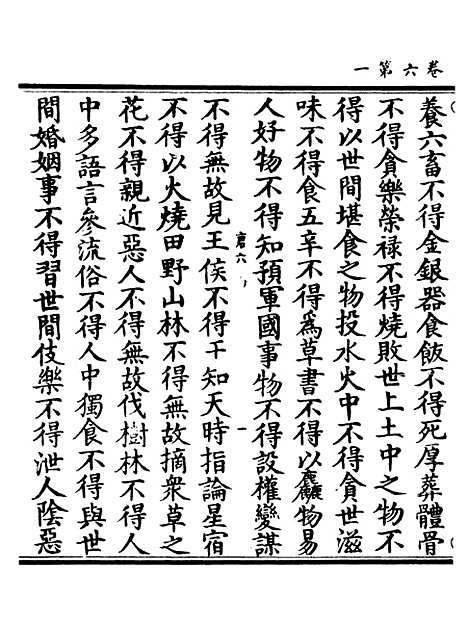 卷六第一
養六畜不得金銀器食飯不得死厚葬體骨
不得貪樂榮祿不得燒敗世上土中之物不
得以世間堪食之物投水火中不得貪世滋
味不得食五辛不得為草書不得以麤物易
人好物不得知預軍國事物不得設權變謀
唐六 一
不得無故見王侯不得干知天時指論星宿
不得以火燒田野山林不得無故摘衆草之
花不得親近惡人不得無故伐樹林不得人
中多語言參流俗不得人中獨食不得與世
間婚姻事不得習世間伎樂不得泄人陰惡